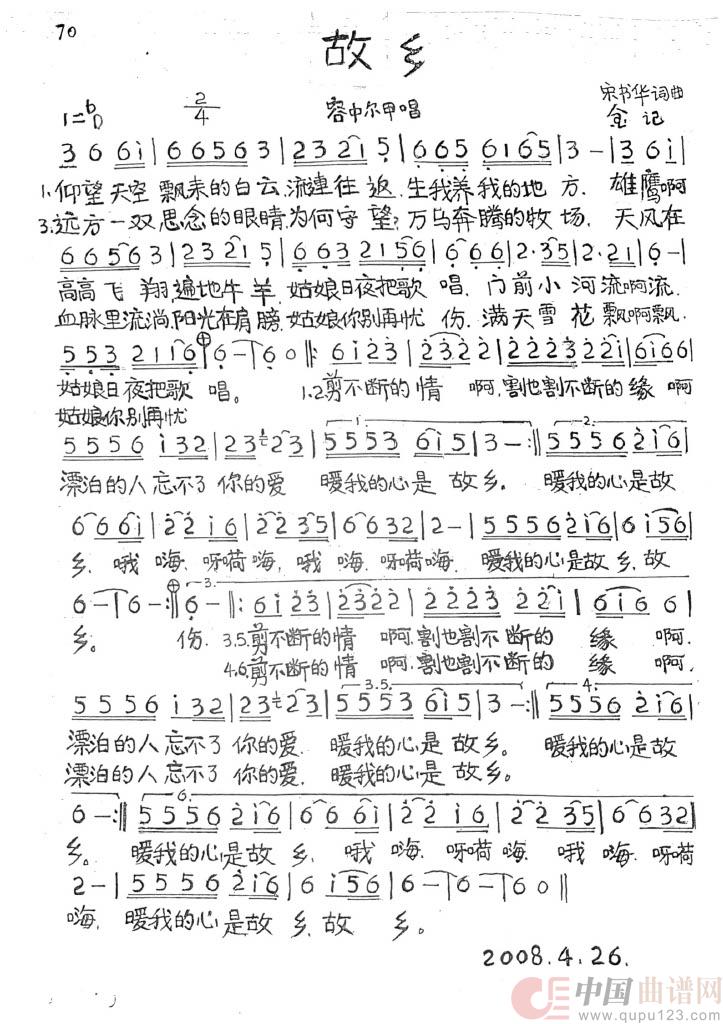 70
故乡
1=ᵇD 2/4 容中尔甲唱 宋书华词曲
金记
3 6 6i | 6 6 5 6 3 | 2 3 2 i 5 | 6 6 5 6 i 6 5 | 3 - | 3 6 i |
1.仰望天空飘来的白云,流连往返.生我养我的地方.雄鹰啊
3.远方一双思念的眼睛,为何守望?万马奔腾的牧场,天风在
6 6 5 6 3 | 2 3 2 i 5 | 6 6 3 2 1 5 6 | 6 6 6 | 2·3 5 | 2·2 1 | 6 - |
高高飞翔遍地牛羊.姑娘日夜把歌唱,门前小河流啊流.
血脉里流淌,阳光在肩膀,姑娘你别再忧伤.满天雪花飘啊飘.
5 5 3 2 1 1 6 | 6 - | 6 0 ‖: 6 i 2 3 | 2 3 2 2 | 2 2 2 3 2 2 i | 6 i 6 6 |
姑娘日夜把歌唱。1.2剪不断的情啊,割也割不断的缘啊
姑娘你别再忧
5 5 5 6 i 3 2 | 2 3 2 3 | 5 5 5 3 6 i 5 | 3 - :‖ 5 5 5 6 2 i 6 |
漂泊的人忘不了你的爱 暖我的心是故乡。暖我的心是故
6 6 6 i | 2 2 i 6 | 2 2 3 5 | 6 6 3 2 | 2 - | 5 5 5 6 2 i 6 | 6 i 5 6 |
乡.哦嗨.呀嗬嗨,哦嗨.呀嗬嗨.暖我的心是故乡.故
6 - | 6 - :‖ 3. 6 - ‖: 6 i 2 3 | 2 3 2 2 | 2 2 2 3 2 2 i | 6 i 6 6 |
乡。伤.3.5.剪不断的情啊,割也割不断的缘啊.
4.6.剪不断的情啊,割也割不断的缘啊.
5 5 5 6 i 3 2 | 2 3 2 3 | 3.5. 5 5 5 3 6 i 5 | 3 - :‖ 4. 5 5 5 6 2 i 6 |
漂泊的人忘不了你的爱.暖我的心是故乡。暖我的心是故
漂泊的人忘不了你的爱.暖我的心是故乡。
6 - :‖ 6. 5 5 5 6 2 i 6 | 6 6 6 i | 2 2 i 6 | 2 2 3 5 | 6 6 3 2 |
乡。暖我的心是故乡,哦嗨.呀嗬嗨.哦嗨.呀嗬
2 - | 5 5 5 6 2 i 6 | 6 i 5 6 | 6 - | 6 - | 6 0 ‖
嗨,暖我的心是故乡,故乡。
2008.4.26.
中国曲谱网
www.qupu123.com